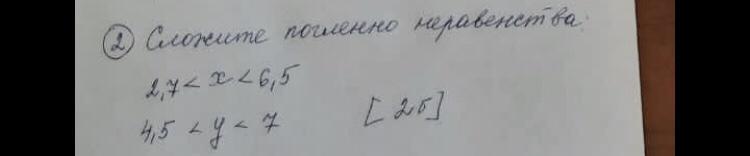 ② Сложите почленно неравенства:
2,7 < x < 6,5
4,5 < y < 7 [2б]